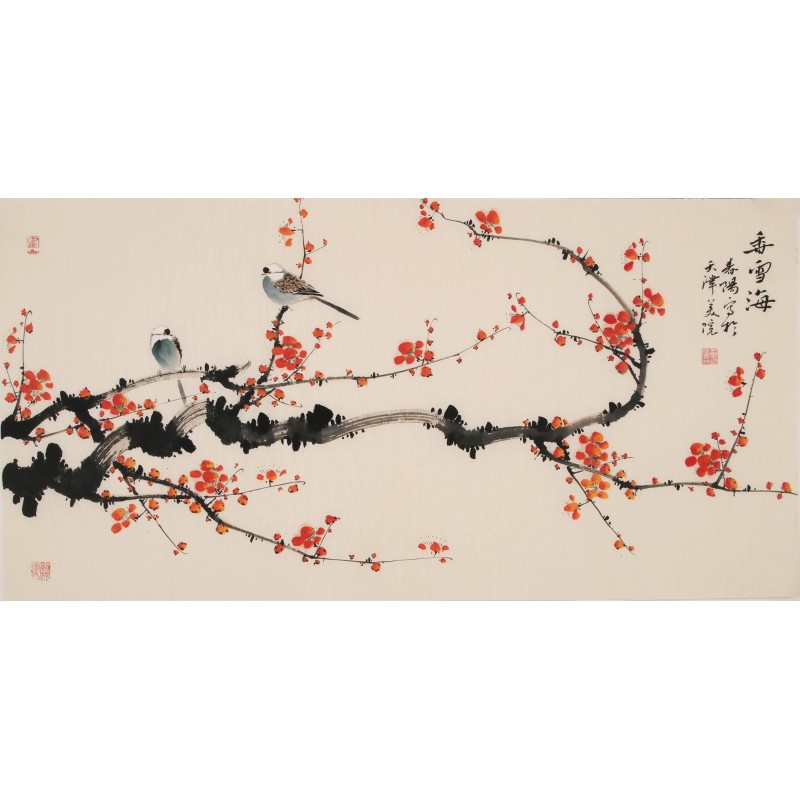 香雪海
春陽写於
天津美院